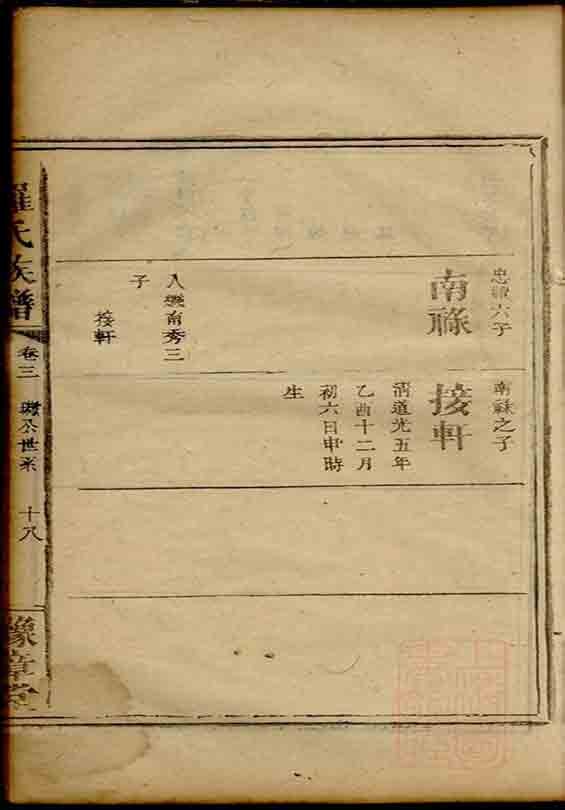 忠祿六子
南祿
入繼南秀三
子
接軒
南祿之子
接軒
清道光五年
乙酉十二月
初六日申時
生
羅氏族譜
卷三
公世系
十八
豫章堂